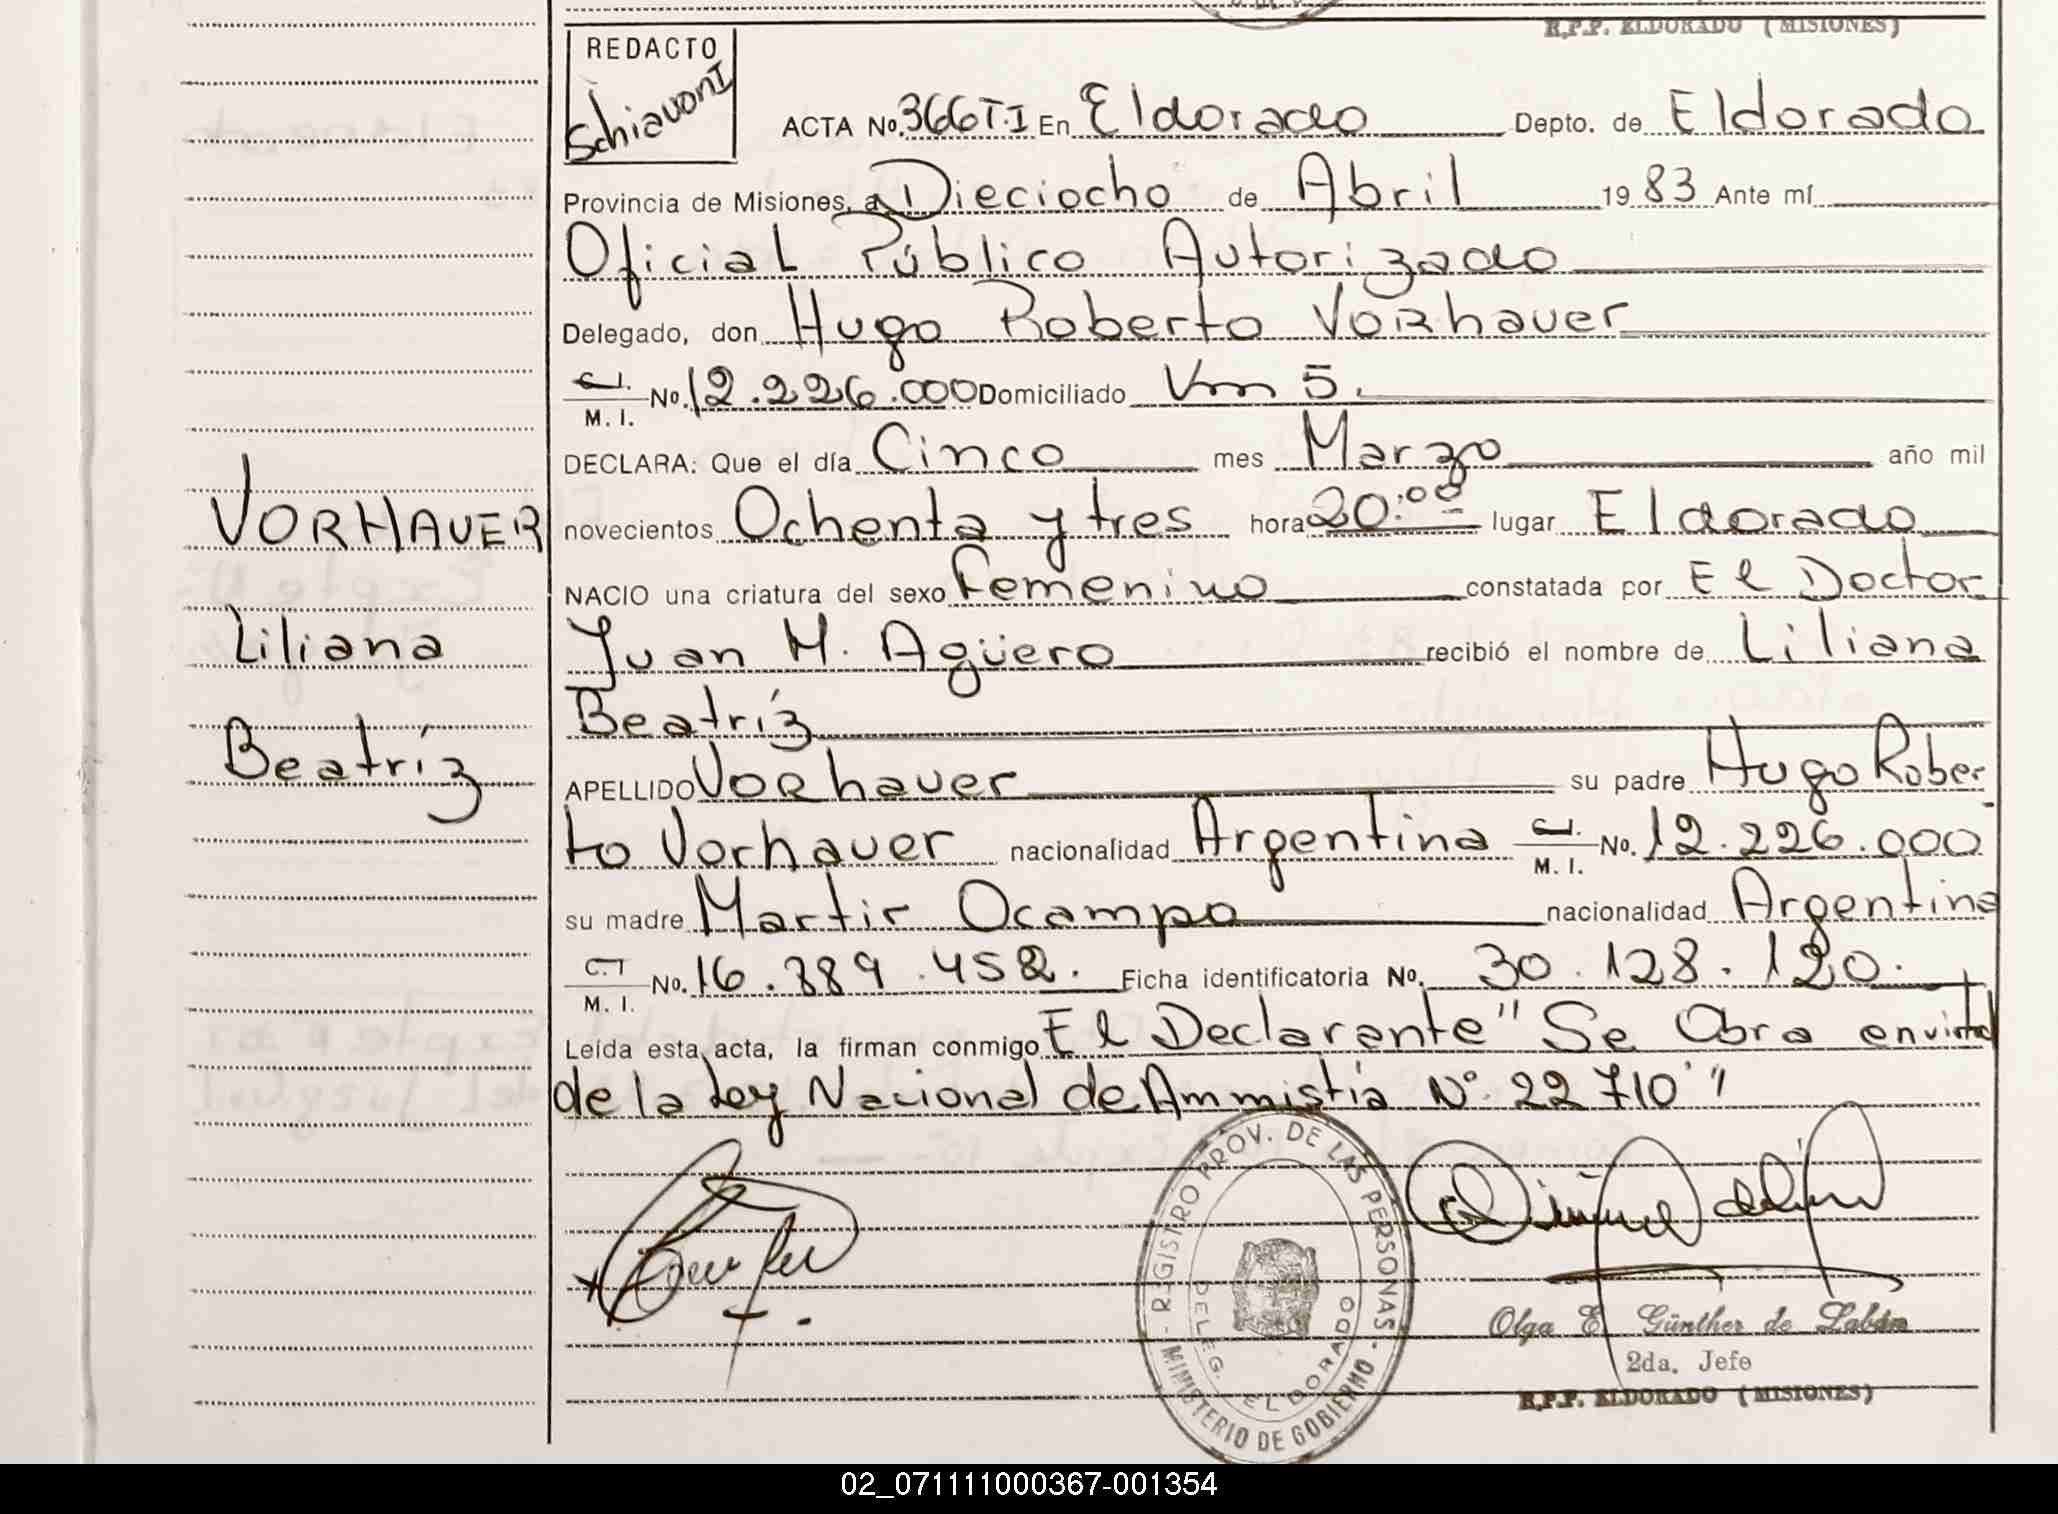 R.P.P. ELDORADO (MISIONES)
REDACTO
Schiavoni
ACTA No. 366 T.I En Eldorado Depto. de Eldorado
Provincia de Misiones, a Dieciocho de Abril 19 83 Ante mí
Oficial Público Autorizado
Delegado, don Hugo Roberto Vorhauer
C.I.
M. I. No. 12.226.000 Domiciliado Km 5.
DECLARA: Que el día Cinco mes Marzo año mil
novecientos Ochenta y tres hora 20:00 lugar Eldorado
NACIO una criatura del sexo Femenino constatada por El Doctor
Juan M. Agüero recibió el nombre de Liliana
Beatríz
APELLIDO Vorhauer su padre Hugo Rober
to Vorhauer nacionalidad Argentina C.I.
M. I. No. 12.226.000
su madre Martir Ocampo nacionalidad Argentina
C.I
M. I. No. 16.389.452. Ficha identificatoria No. 30.128.120.
Leída esta acta, la firman conmigo El Declarante "Se Obra en virtud
de la Ley Nacional de Ammistía Nº 22710"
VORHAUER
Liliana
Beatríz
REGISTRO PROV. DE LAS PERSONAS
DELEG. ELDORADO
MINISTERIO DE GOBIERNO
Olga E. Günther de Labán
2da. Jefe
R.P.P. ELDORADO (MISIONES)
02_071111000367-001354